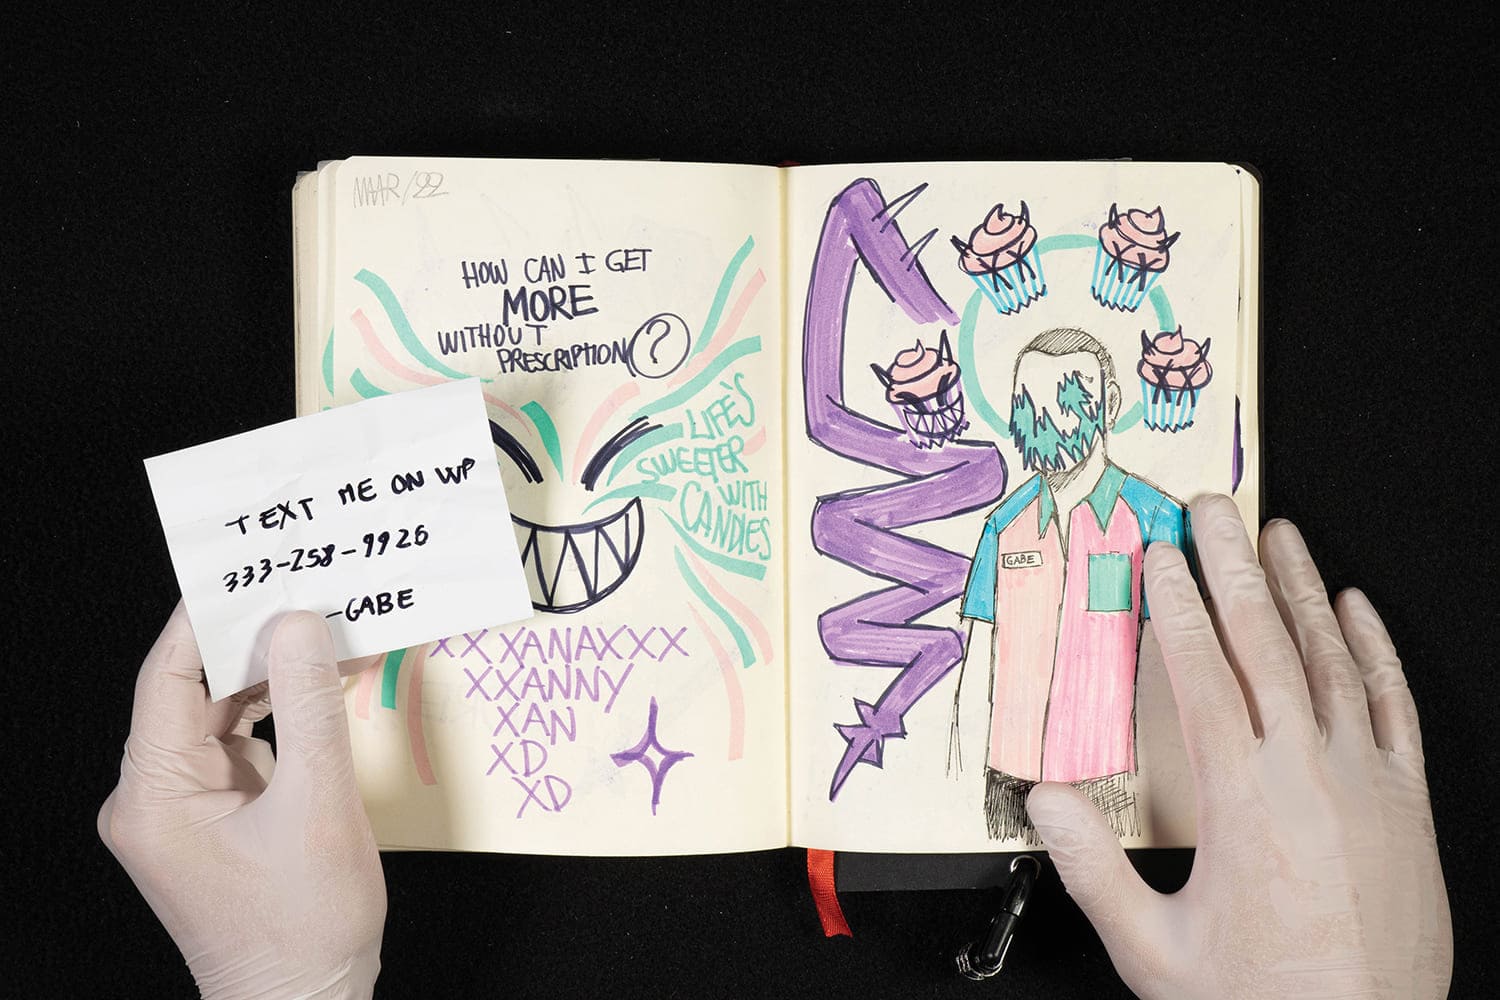 MAR/22
HOW CAN I GET
MORE
WITHOUT
PRESCRIPTION?
LIFE'S
SWEETER
WITH
CANDIES
TEXT ME ON WP
333-258-9926
-GABE
XX XANAXXX
XXANNY
XAN
XD
XD
GABE